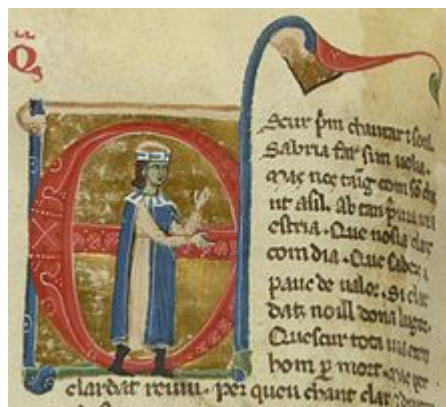 E Scur p̃m chantar ⁊ sotil.
Sabria far sim uolia.
Mas nos taing com so chã
nt afil. Ab tan prima ma
estria. Que nosia clar
com dia. Que saber a
pauc de ualor. Si clar
datz noill dona lugor.
Quescur tota uia
hom p̱ mort. mas per
clardat reuiu. per queu chant clar